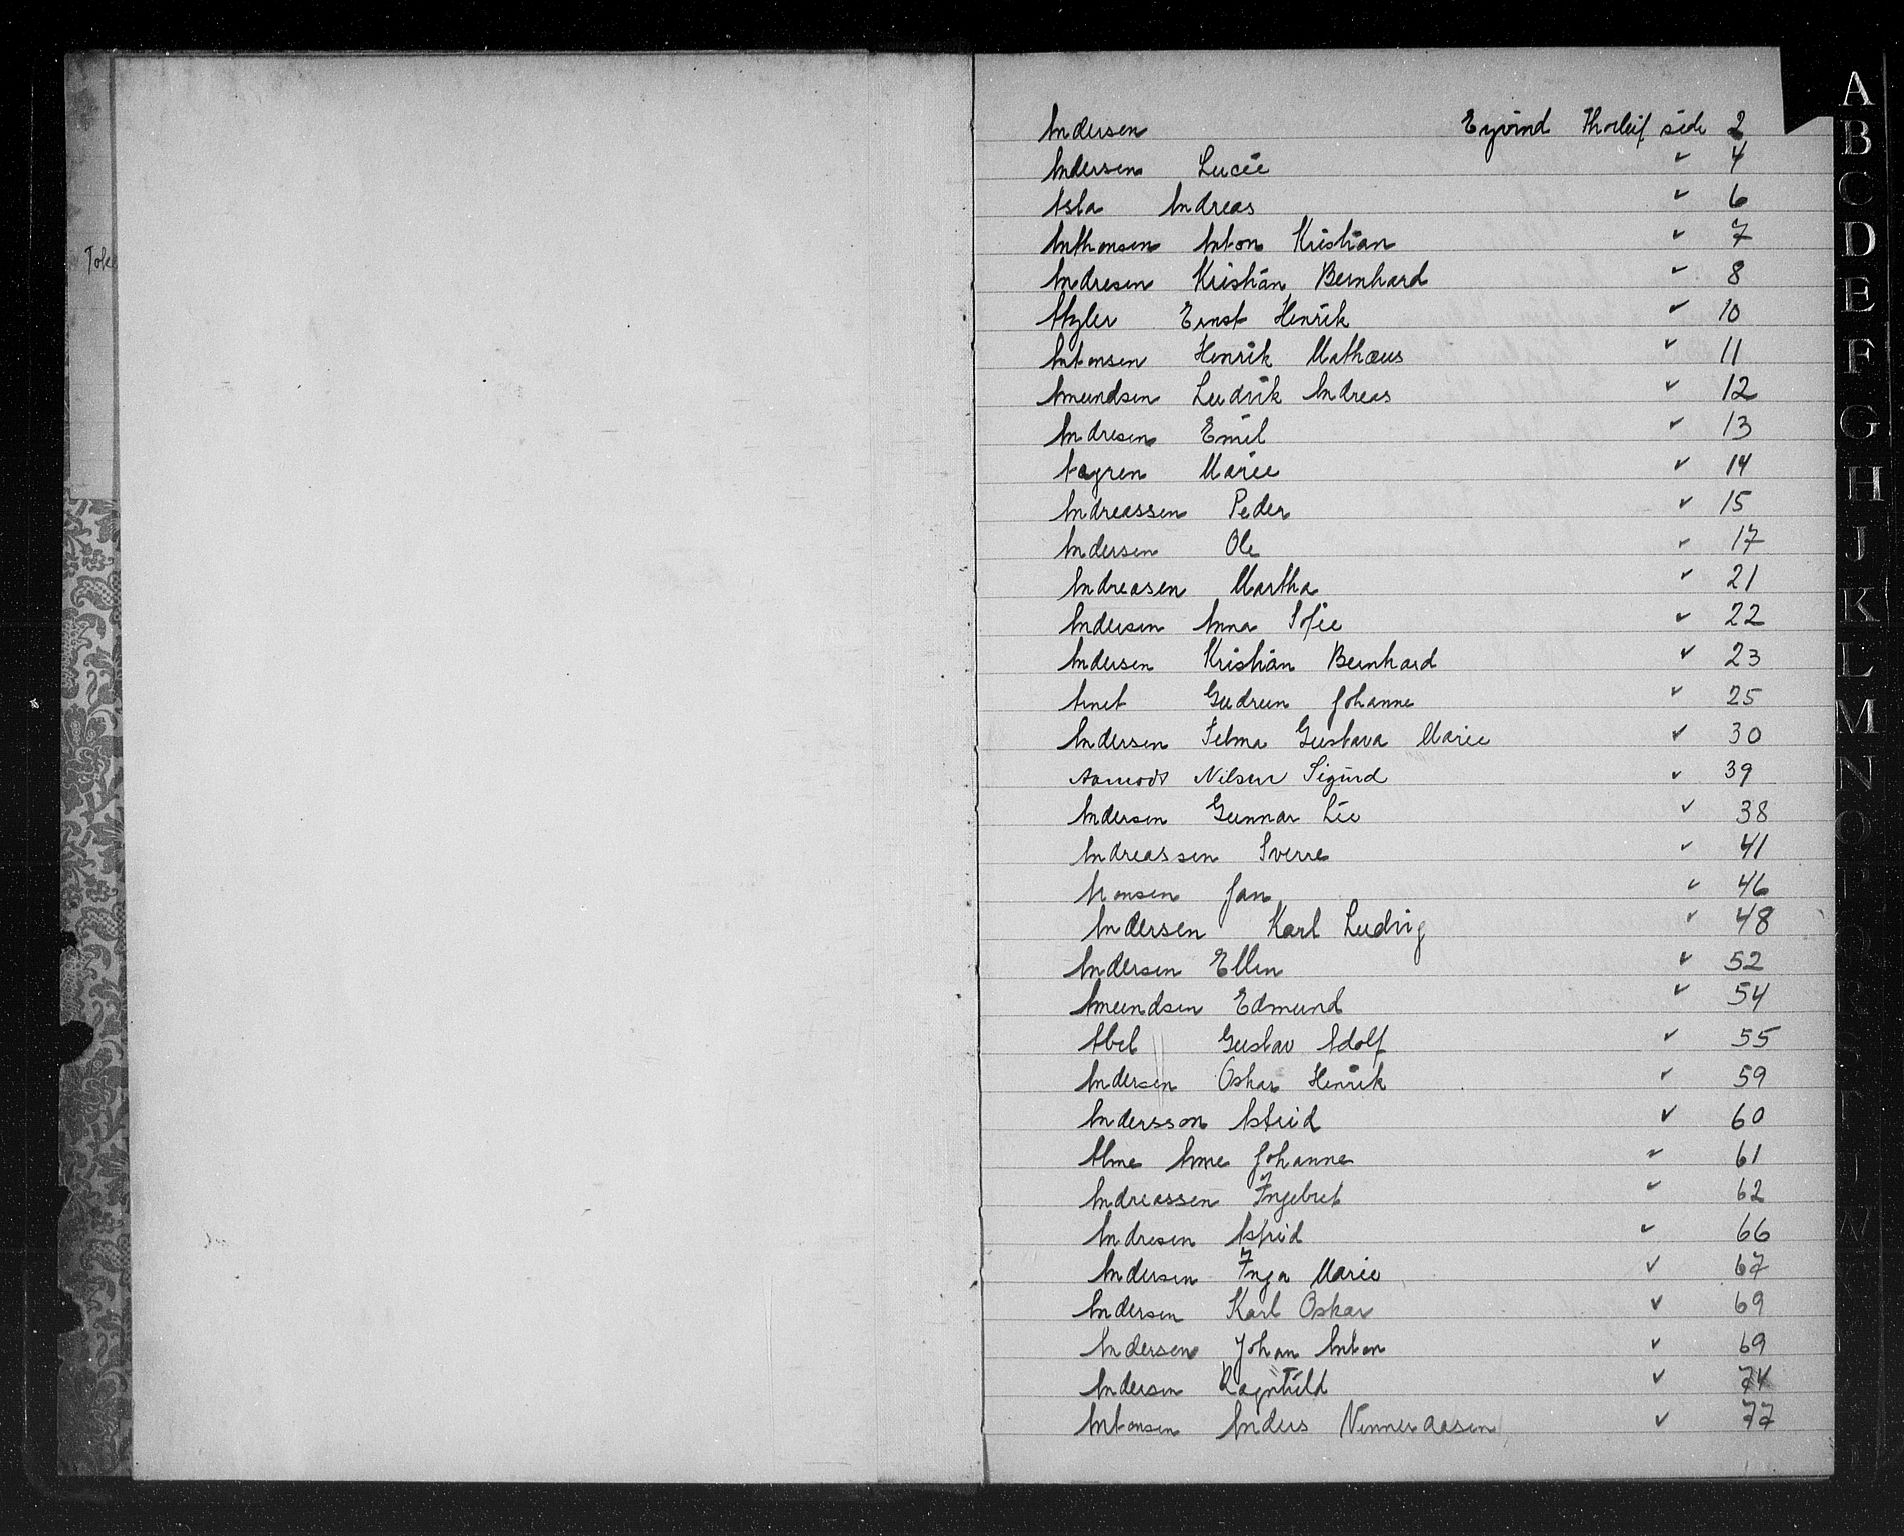 Andersen Eyvind Thorleif side 2
Andersen Lucie " 4
Asla Andreas " 6
Anthonsen Anton Kristian " 7
Andresen Kristian Bernhard " 8
Ernst Henrik " 10
Antonsen Henrik Mathæus " 11
Amundsen Ludvik Andreas " 12
Andresen Emil " 13
Aagren Marie " 14
Andreassen Peder " 15
Andersen Ole " 17
Andreasen Martha " 21
Andersen Anna Sofie " 22
Andersen Kristian Bernhard " 23
Arnet Gudrun Johanne " 25
Andersen Selma Gustava Marie " 30
Aamodt Nilsen Sigurd " 39
Andersen Gunnar Lie " 38
Andreassen Sverre " 41
Aronsen Jan " 46
Andersen Karl Ludvig " 48
Andersen Ellen " 52
Amundsen Edmund " 54
Abel Gustav Adolf " 55
Andersen Oskar Henrik " 59
Andersson Astrid " 60
Alme Anne Johanne " 61
Andreassen Ingebret " 62
Andresen Astrid " 66
Andersen Inga Marie " 67
Andersen Karl Oskar " 69
Andersen Johan Anton " 69
Andersen Ragnhild " 74
Antonsen Anders Venneraasen " 77
A
B
C
D
E
F
G
H
J
K
L
M
N
O
P